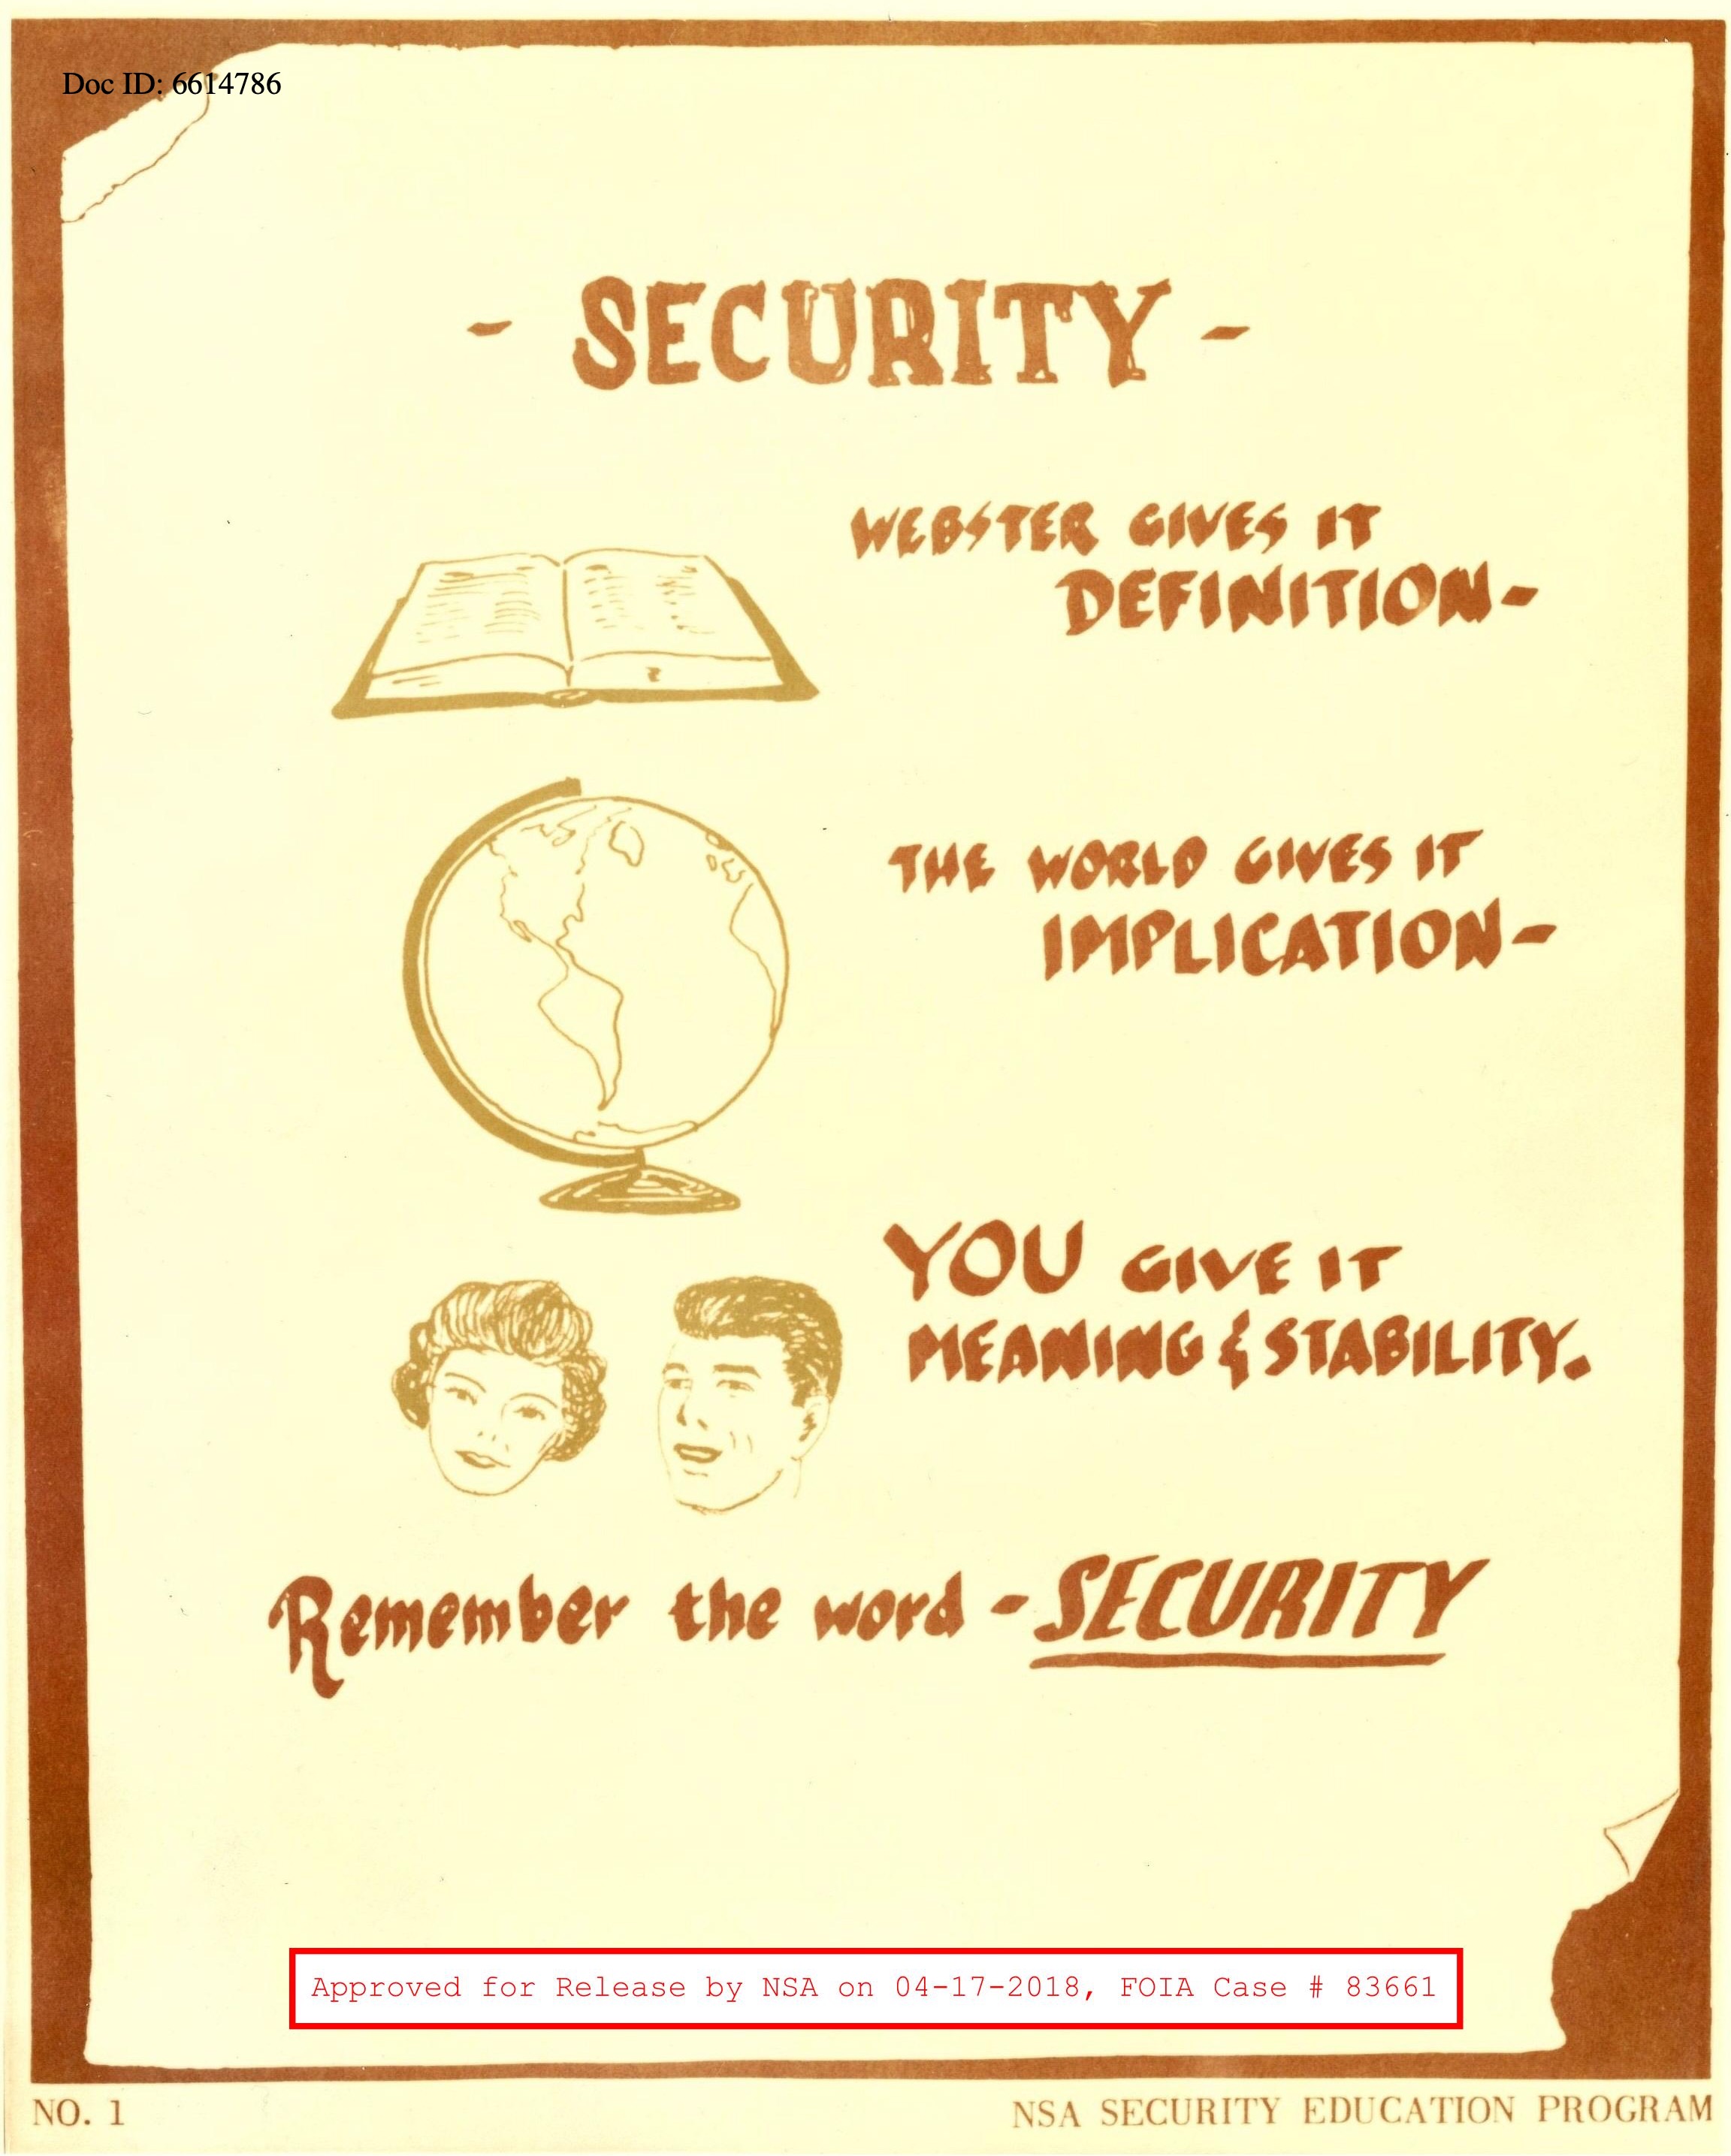 Doc ID: 6614786
- SECURITY -
WEBSTER GIVES IT
DEFINITION-
THE WORLD GIVES IT
IMPLICATION-
YOU GIVE IT
MEANING & STABILITY.
Remember the word - SECURITY
Approved for Release by NSA on 04-17-2018, FOIA Case # 83661
NO. 1
NSA SECURITY EDUCATION PROGRAM